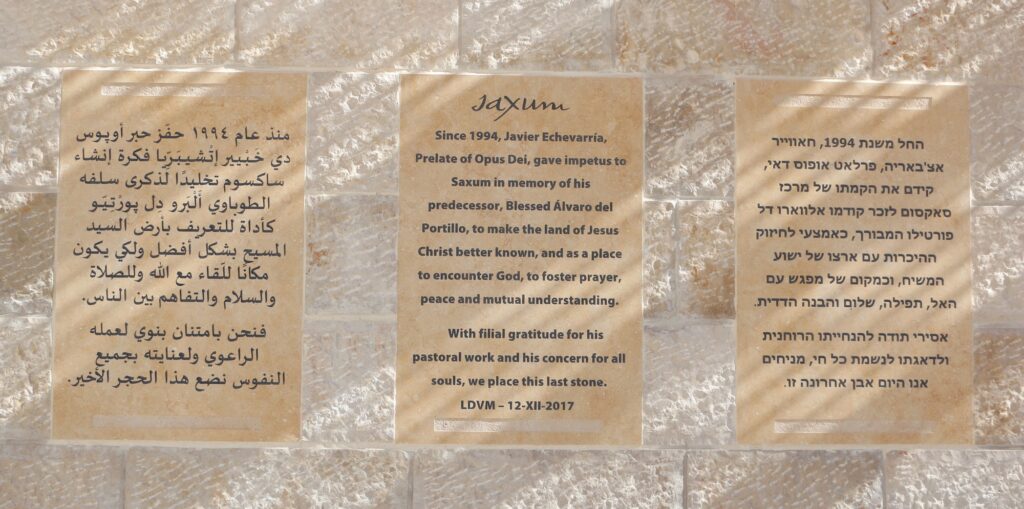 منذ عام ١٩٩٤ حفّز حبر أوپوس
دي خَبْيير إتْشيبَرّيا فكرة إنشاء
ساكسوم تخليدًا لذكرى سلفه
الطوباوي ألْبَرو دِل پورْتِيَو
كأداة للتعريف بأرض السيد
المسيح بشكل أفضل ولكي يكون
مكانًا للقاء مع الله وللصلاة
والسلام والتفاهم بين الناس.
فنحن بامتنان بنوي لعمله
الراعوي ولعنايته بجميع
النفوس نضع هذا الحجر الأخير.
saxum
Since 1994, Javier Echevarría,
Prelate of Opus Dei, gave impetus to
Saxum in memory of his
predecessor, Blessed Álvaro del
Portillo, to make the land of Jesus
Christ better known, and as a place
to encounter God, to foster prayer,
peace and mutual understanding.
With filial gratitude for his
pastoral work and his concern for all
souls, we place this last stone.
LDVM – 12-XII-2017
החל משנת 1994, חאווייר
אצ'באריה, פרלאט אופוס דאי,
קידם את הקמתו של מרכז
סאקסום לזכר קודמו אלווארו דל
פורטילו המבורך, כאמצעי לחיזוק
ההיכרות עם ארצו של ישוע
המשיח, וכמקום של מפגש עם
האל, תפילה, שלום והבנה הדדית.
אסירי תודה להנחייתו הרוחנית
ולדאגתו לנשמת כל חי, מניחים
אנו היום אבן אחרונה זו.